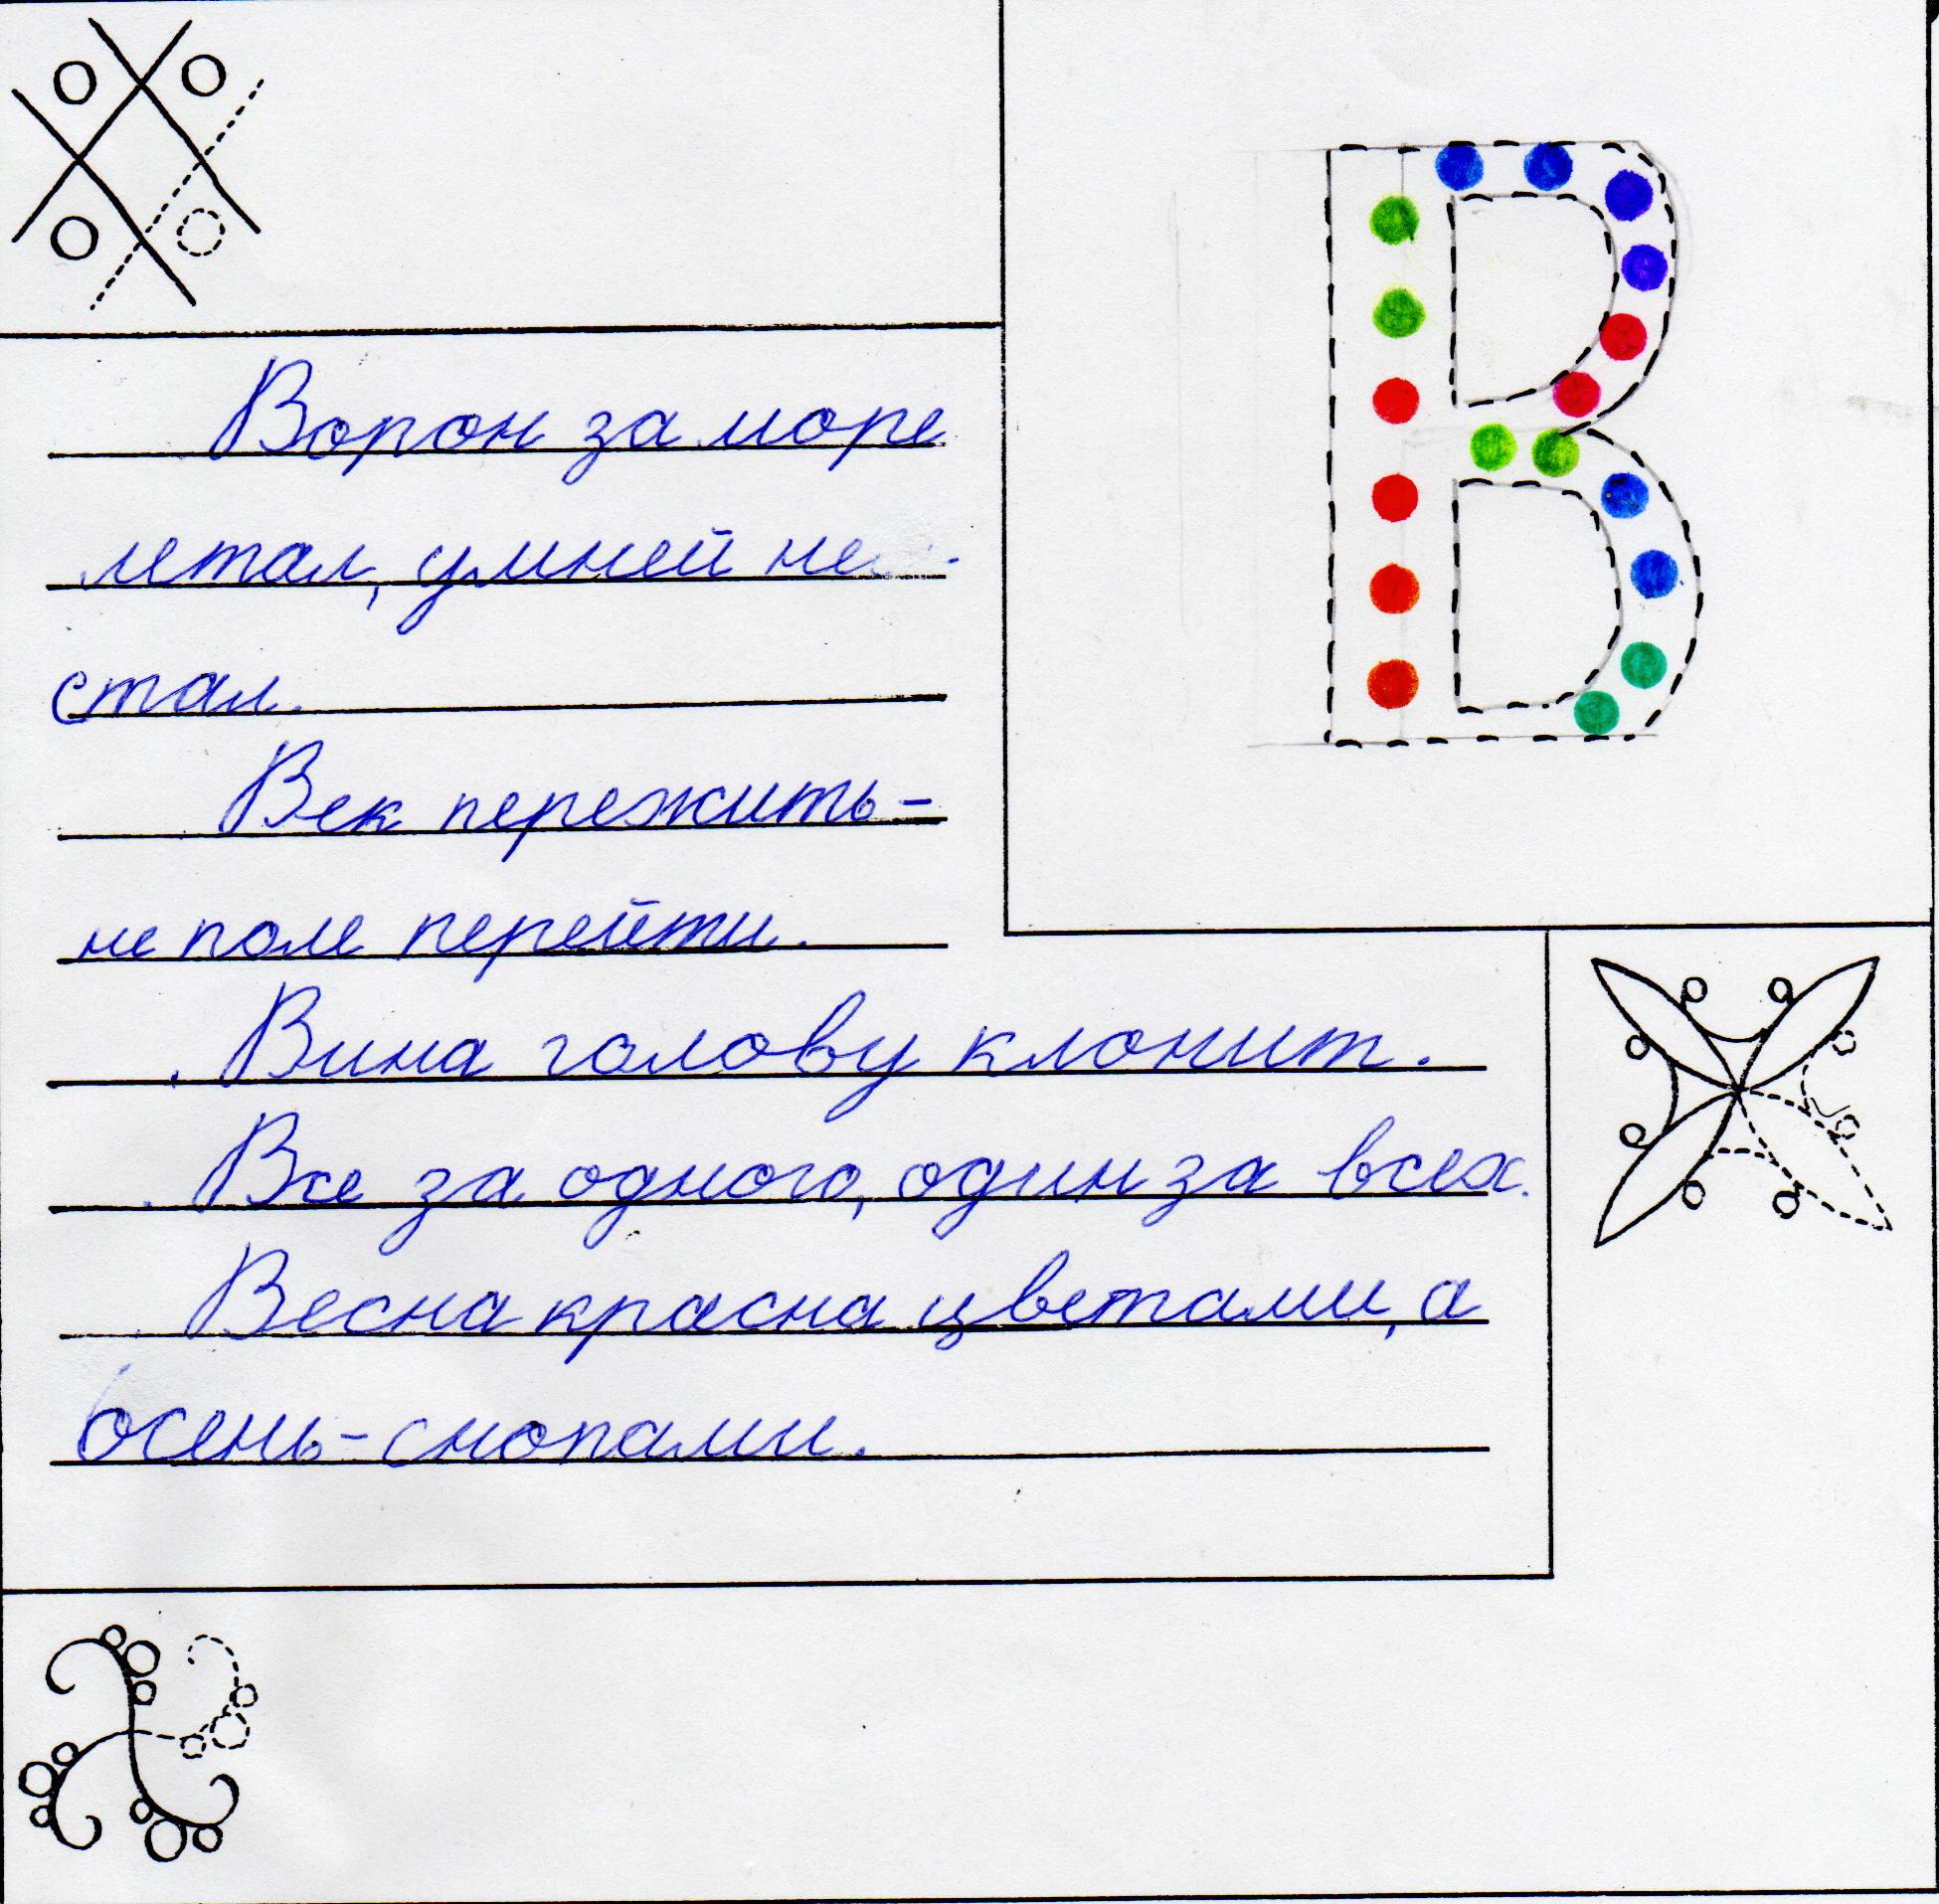 Ворон за море
летал, умней не
стал.
Век пережить-
не поле перейти.
Вина голову клонит.
Все за одного, один за всех.
Весна красна цветами, а
осень-снопами.
В